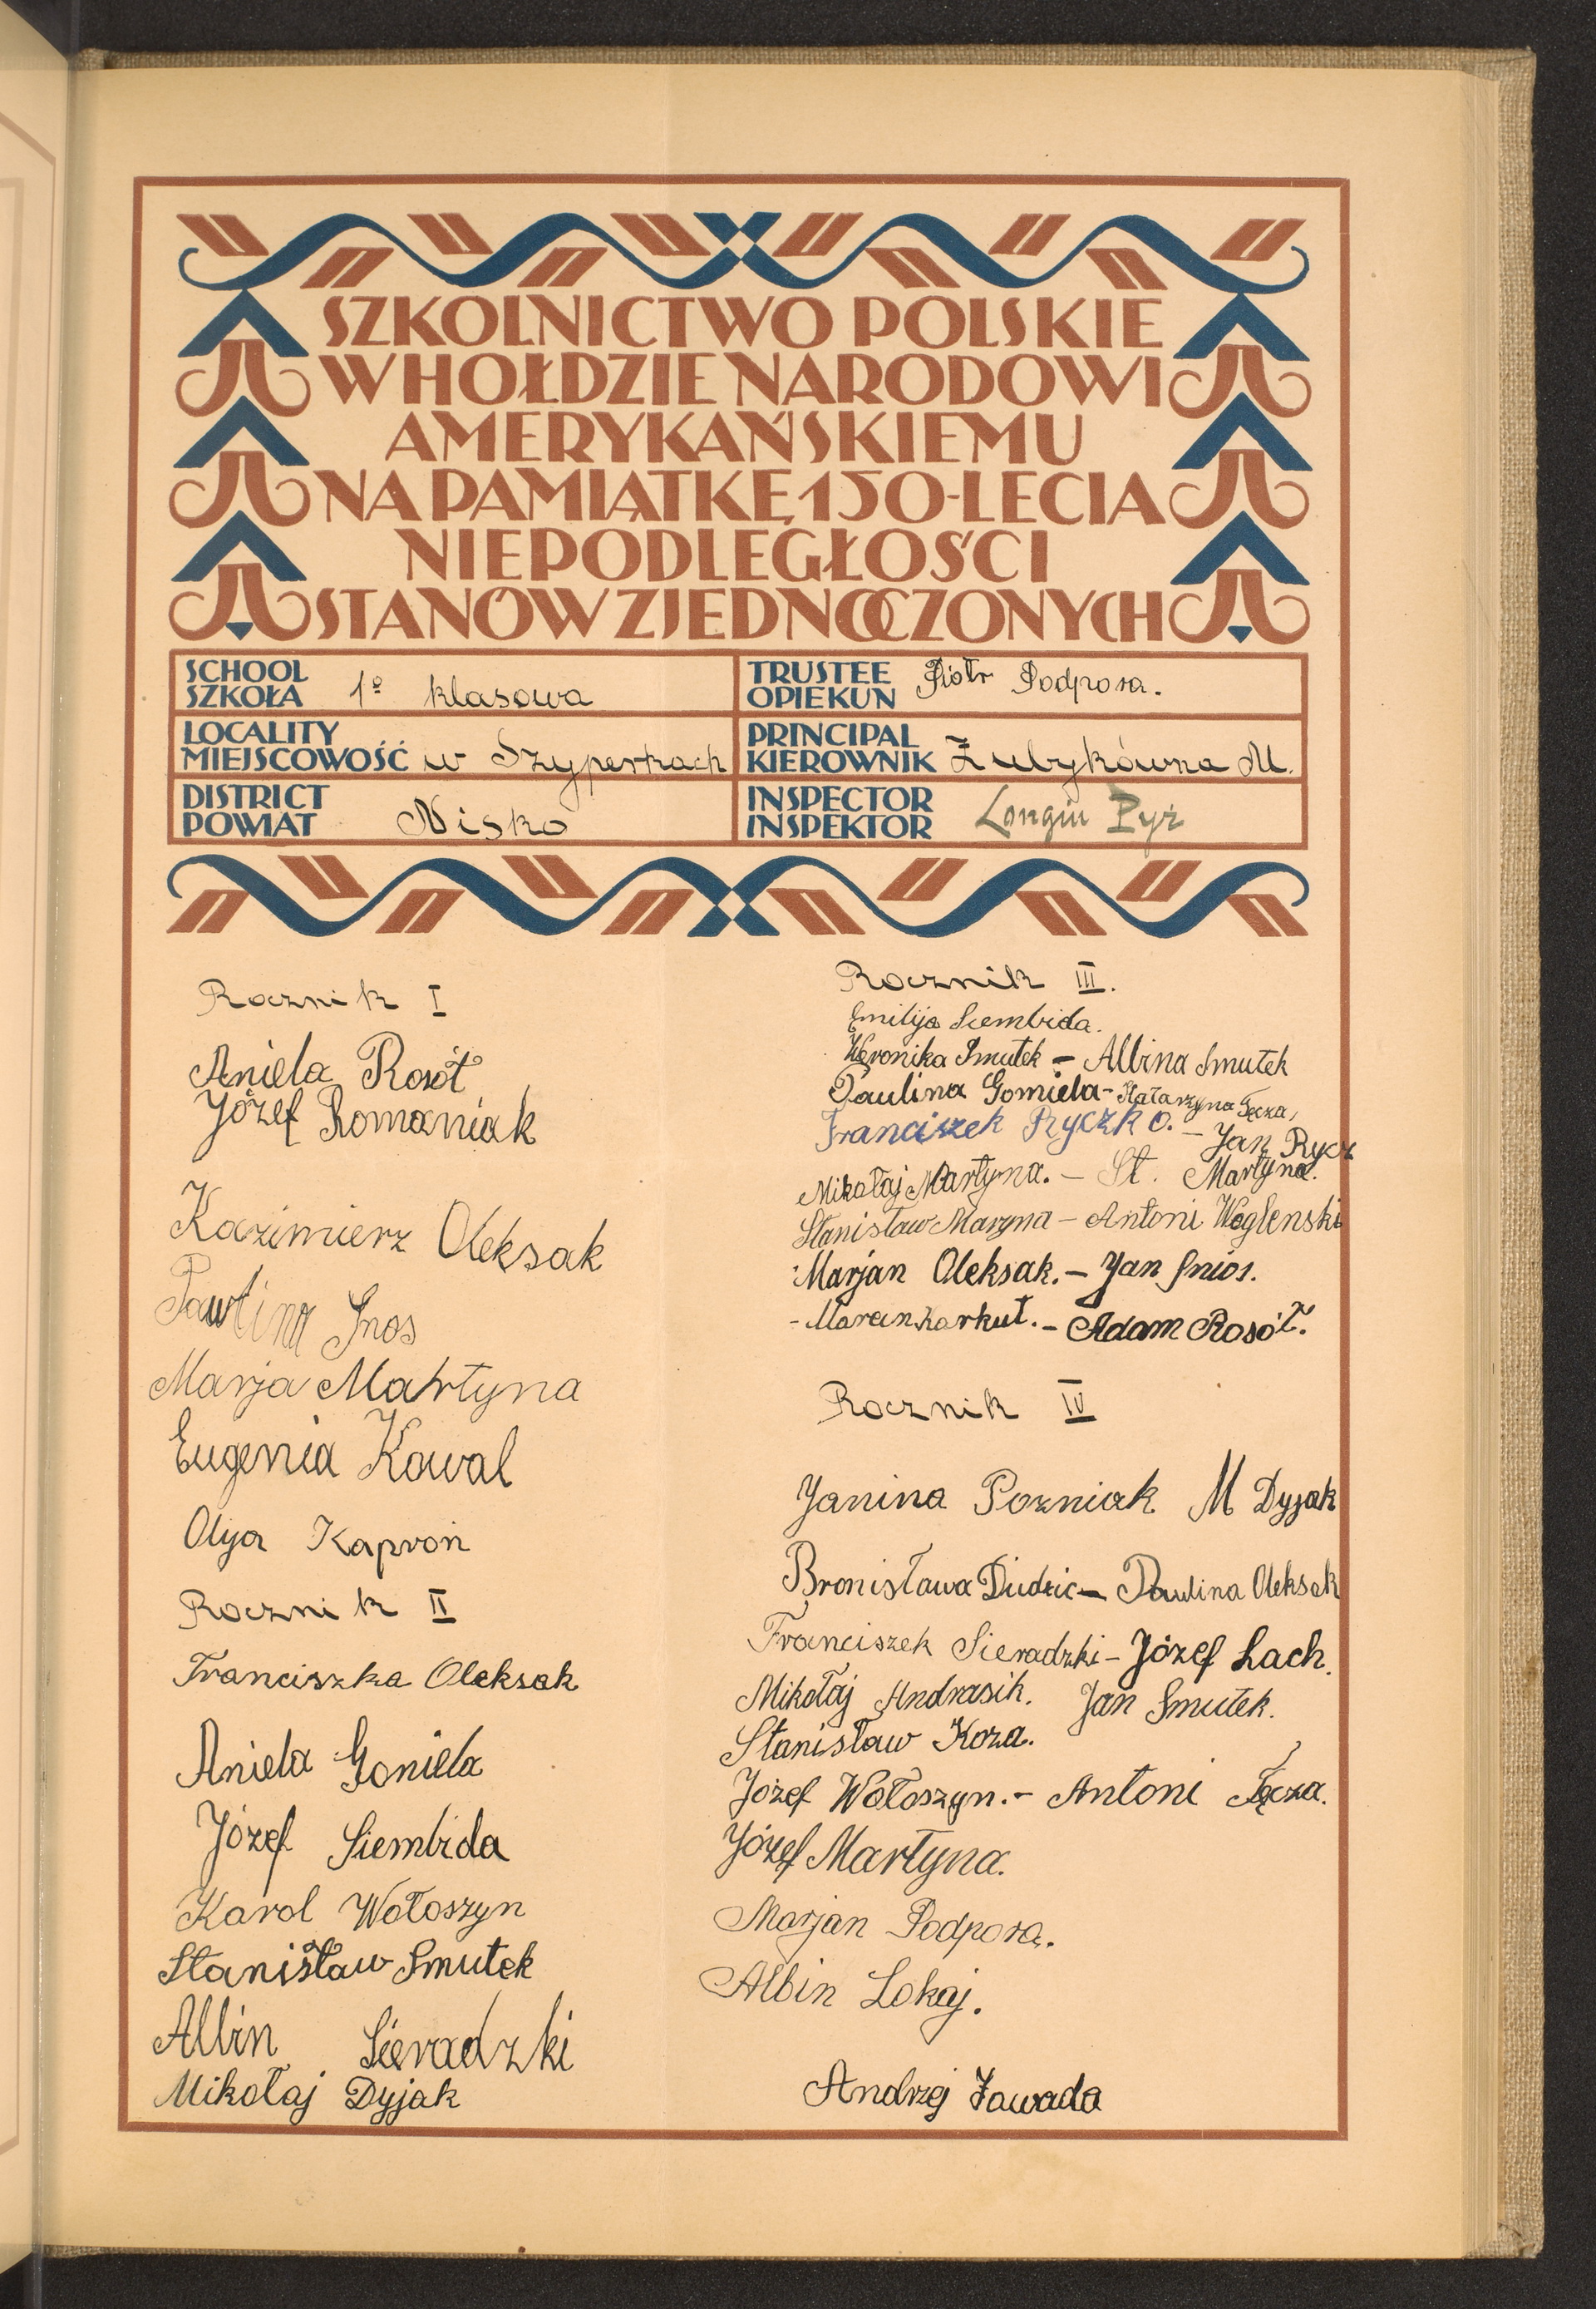 SZKOLNICTWO POLSKIE
W HOŁDZIE NARODOWI
AMERYKAŃSKIEMU
NA PAMIĄTKĘ 150-LECIA
NIEPODLEGŁOŚCI
STANÓW ZJEDNOCZONYCH
SCHOOL
SZKOŁA 1º klasowa
TRUSTEE
OPIEKUN Piotr Podpora.
LOCALITY
MIEJSCOWOŚĆ w Szyperkach
PRINCIPAL
KIEROWNIK Żubykówna M.
DISTRICT
POWIAT Nisko
INSPECTOR
INSPEKTOR Longin Pyź
Rocznik I
Aniela Rosół
Józef Romaniak
Kazimierz Oleksak
Paulina Snos
Marja Martyna
Eugenia Kowal
Olga Kaproń
Rocznik II
Franciszka Oleksak
Aniela Goniela
Józef Siembida
Karol Wołoszyn
Stanisław Smutek
Albin Sieradzki
Mikołaj Dyjak
Rocznik III.
Emilija Siembida.
Weronika Smutek – Albina Smutek
Paulina Gomiela – Katarzyna Tęcza,
Franciszek Ryczko. – Jan Rycz
Mikołaj Martyna. – St. Martyna.
Stanisław Maryna – Antoni Woglenski
Marjan Oleksak. – Jan Snios.
- Marcin Karkut. – Adam Rosół.
Rocznik IV
Janina Pozniak M Dyjak
Bronisława Dudzic – Paulina Oleksak
Franciszek Sieradzki – Józef Lach.
Mikołaj Andrasik. Jan Smutek.
Stanisław Koza.
Józef Wołoszyn. – Antoni Tęcza.
Józef Martyna.
Marjan Podpora.
Albin Lokaj.
Andrzej Zawada